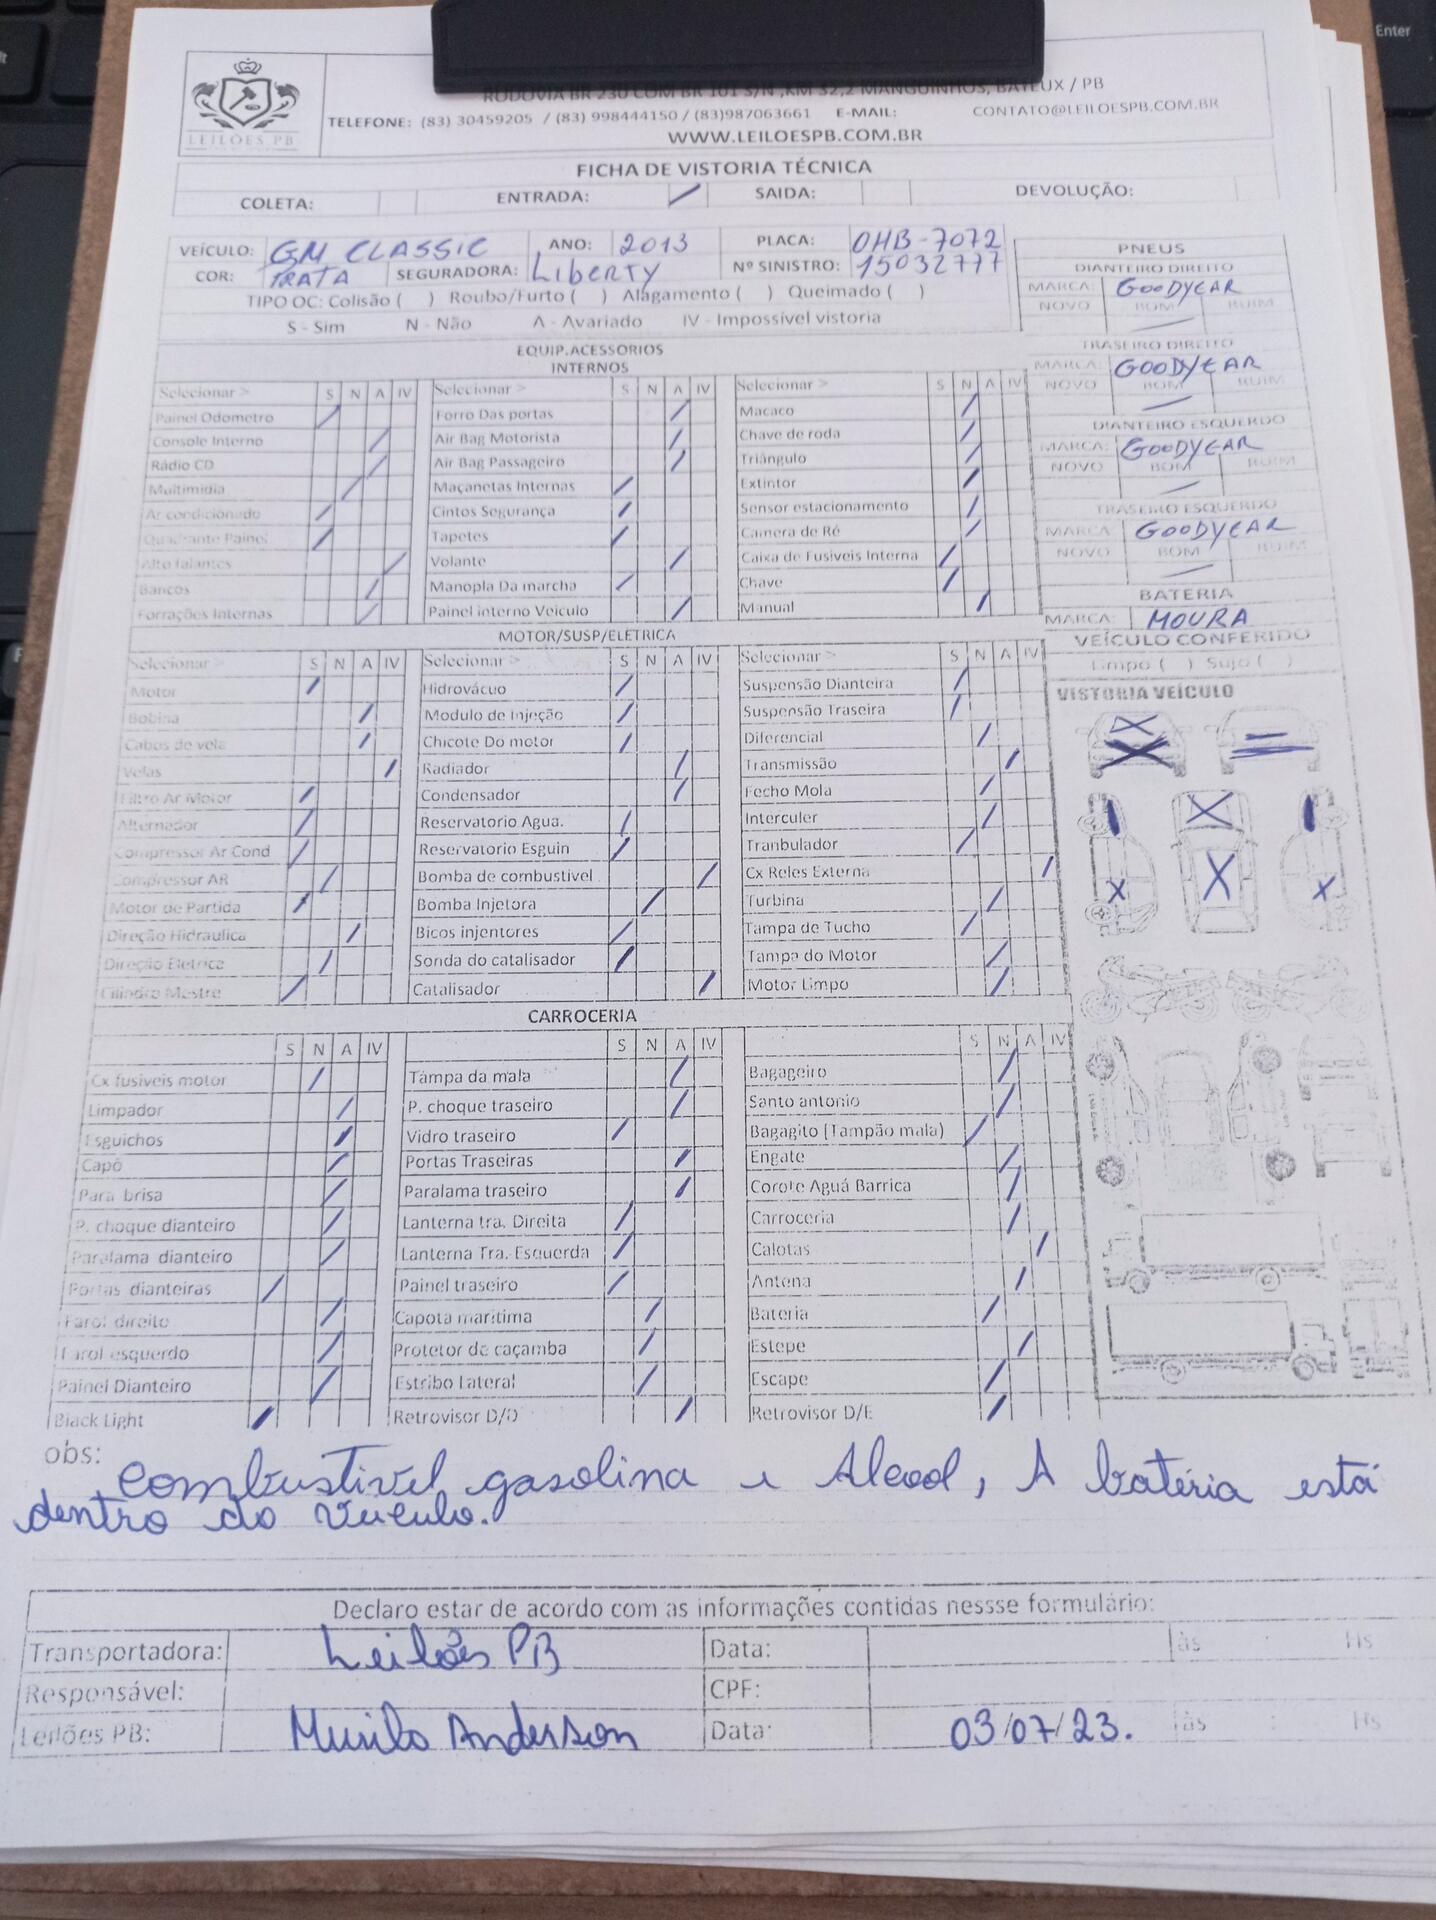 LEILÕES PB
RODOVIA BR 230 COM BR 101 S/N ,KM 32,2 MANGUINHOS, BAYEUX / PB
TELEFONE: (83) 30459205 / (83) 998444150 / (83)987063661 E-MAIL: CONTATO@LEILOESPB.COM.BR
WWW.LEILOESPB.COM.BR
FICHA DE VISTORIA TÉCNICA
COLETA: ENTRADA: / SAIDA: DEVOLUÇÃO:
VEÍCULO: GM CLASSIC ANO: 2013 PLACA: OHB-7072
COR: PRATA SEGURADORA: Liberty Nº SINISTRO: 15032777
TIPO OC: Colisão ( ) Roubo/Furto ( ) Alagamento ( ) Queimado ( )
S - Sim N - Não A - Avariado IV - Impossível vistoria
PNEUS
DIANTEIRO DIREITO
MARCA: GOODYEAR
NOVO BOM RUIM
TRASEIRO DIREITO
MARCA: GOODYEAR
NOVO BOM RUIM
DIANTEIRO ESQUERDO
MARCA: GOODYEAR
NOVO BOM RUIM
TRASEIRO ESQUERDO
MARCA GOODYEAR
NOVO BOM RUIM
BATERIA
MARCA: MOURA
VEÍCULO CONFERIDO
Limpo ( ) Sujo ( )
VISTORIA VEÍCULO
EQUIP.ACESSORIOS
INTERNOS
Selecionar > S N A IV Selecionar > S N A IV Selecionar > S N A IV
Painel Odometro Forro Das portas Macaco
Console Interno Air Bag Motorista Chave de roda
Rádio CD Air Bag Passageiro Triângulo
Multimidia Maçanetas Internas Extintor
Ar condicionado Cintos Segurança Sensor estacionamento
Quadrante Painel Tapetes Camera de Ré
Alto falantes Volante Caixa de Fusiveis Interna
Bancos Manopla Da marcha Chave
Forrações Internas Painel interno Veiculo Manual
MOTOR/SUSP/ELETRICA
Selecionar > S N A IV Selecionar > S N A IV Selecionar > S N A IV
Motor Hidrovácuo Suspensão Dianteira
Bobina Modulo de Injeção Suspensão Traseira
Cabos de vela Chicote Do motor Diferencial
Velas Radiador Transmissão
Filtro Ar Motor Condensador Fecho Mola
Alternador Reservatorio Agua. Interculer
Compressor Ar Cond Reservatorio Esguin Tranbulador
Compressor AR Bomba de combustivel Cx Reles Externa
Motor de Partida Bomba Injetora Turbina
Direção Hidraulica Bicos injentores Tampa de Tucho
Direção Eletrica Sonda do catalisador Tampa do Motor
Cilindro Mestre Catalisador Motor Limpo
CARROCERIA
S N A IV S N A IV S N A IV
Cx fusiveis motor Tampa da mala Bagageiro
Limpador P. choque traseiro Santo antonio
Esguichos Vidro traseiro Bagagito (Tampão mala)
Capô Portas Traseiras Engate
Para brisa Paralama traseiro Corote Aguá Barrica
P. choque dianteiro Lanterna tra. Direita Carroceria
Paralama dianteiro Lanterna Tra. Esquerda Calotas
Portas dianteiras Painel traseiro Antena
Farol direito Capota maritima Bateria
Farol esquerdo Protetor de caçamba Estepe
Painel Dianteiro Estribo Lateral Escape
Black Light Retrovisor D/D Retrovisor D/E
obs: combustivel gasolina e Alcool, A bateria está
dentro do veiculo.
Declaro estar de acordo com as informações contidas nessse formulário:
Transportadora: Leilões PB Data: às : Hs
Responsável: CPF:
Leilões PB: Murilo Anderson Data: 03/07/23. às : Hs
Enter